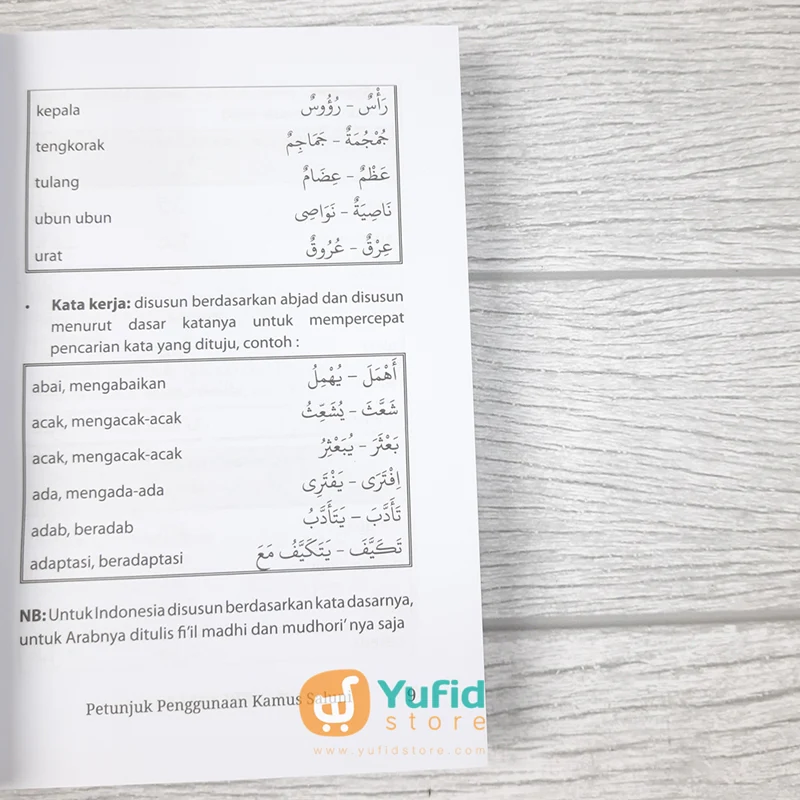 kepala رَأْسٌ – رُؤُوسٌ
tengkorak جُمْجُمَةٌ – جَمَاجِمٌ
tulang عَظْمٌ – عِضَامٌ
ubun ubun نَاصِيَةٌ – نَوَاصِى
urat عِرْقٌ – عُرُوقٌ
• Kata kerja: disusun berdasarkan abjad dan disusun
menurut dasar katanya untuk mempercepat
pencarian kata yang dituju, contoh :
abai, mengabaikan أَهْمَلَ – يُهْمِلُ
acak, mengacak-acak شَعَّثَ – يُشَعِّثُ
acak, mengacak-acak بَعْثَرَ – يُبَعْثِرُ
ada, mengada-ada اِفْتَرَى – يَفْتَرِى
adab, beradab تَأَدَّبَ – يَتَأَدَّبُ
adaptasi, beradaptasi تَكَيَّفَ – يَتَكَيَّفُ مَعَ
NB: Untuk Indonesia disusun berdasarkan kata dasarnya,
untuk Arabnya ditulis fi'il madhi dan mudhori' nya saja
Petunjuk Penggunaan Kamus 9
Yufid
store
www.yufidstore.com